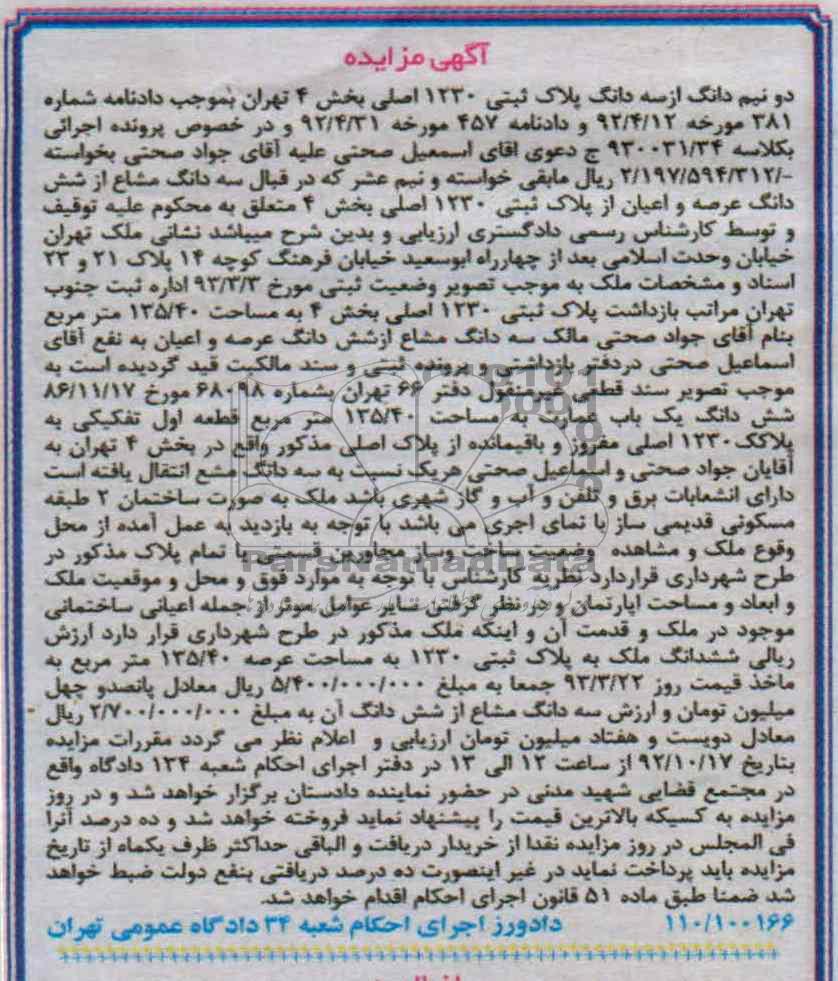 آگهی مزایده
دو نیم دانگ ازسه دانگ پلاک ثبتی ۱۲۳۰ اصلی بخش ۴ تهران بموجب دادنامه شماره
۳۸۱ مورخه ۹۲/۴/۱۲ و دادنامه ۴۵۷ مورخه ۹۲/۴/۳۱ و در خصوص پرونده اجرائی
بکلاسه ۹۳۰۰۳۱/۳۴ ج دعوی اقای اسمعیل صحتی علیه آقای جواد صحتی بخواسته
۲/۱۹۷/۵۹۴/۳۱۲/- ریال مابقی خواسته و نیم عشر که در قبال سه دانگ مشاع از شش
دانگ عرصه و اعیان از پلاک ثبتی ۱۲۳۰ اصلی بخش ۴ متعلق به محکوم علیه توقیف
و توسط کارشناس رسمی دادگستری ارزیابی و بدین شرح میباشد نشانی ملک تهران
خیابان وحدت اسلامی بعد از چهارراه ابوسعید خیابان فرهنگ کوچه ۱۴ پلاک ۲۱ و ۲۳
اسناد و مشخصات ملک به موجب تصویر وضعیت ثبتی مورخ ۹۳/۳/۳ اداره ثبت جنوب
تهران مراتب بازداشت پلاک ثبتی ۱۲۳۰ اصلی بخش ۴ به مساحت ۱۳۵/۴۰ متر مربع
بنام آقای جواد صحتی مالک سه دانگ مشاع ازشش دانگ عرصه و اعیان به نفع آقای
اسماعیل صحتی دردفتر بازداشتی و پرونده ثبتی و سند مالکیت قید گردیده است به
موجب تصویر سند قطعی غیرمنقول دفتر ۶۶ تهران بشماره ۶۸۰۹۸ مورخ ۸۶/۱۱/۱۷
شش دانگ یک باب عمارت به مساحت ۱۳۵/۴۰ متر مربع قطعه اول تفکیکی به
پلاکک۱۲۳۰ اصلی مفروز و باقیمانده از پلاک اصلی مذکور واقع در بخش ۴ تهران به
آقایان جواد صحتی و اسماعیل صحتی هریک نسبت به سه دانگ مشع انتقال یافته است
دارای انشعابات برق و تلفن و آب و گاز شهری باشد ملک به صورت ساختمان ۲ طبقه
مسکونی قدیمی ساز با نمای اجری می باشد با توجه به بازدید به عمل آمده از محل
وقوع ملک و مشاهده وضعیت ساخت وساز مجاورین قسمتی یا تمام پلاک مذکور در
طرح شهرداری قراردارد نظریه کارشناس با توجه به موارد فوق و محل و موقعیت ملک
و ابعاد و مساحت اپارتمان و در نظر گرفتن سایر عوامل موثر از جمله اعیانی ساختمانی
موجود در ملک و قدمت آن و اینکه ملک مذکور در طرح شهرداری قرار دارد ارزش
ریالی ششدانگ ملک به پلاک ثبتی ۱۲۳۰ به مساحت عرصه ۱۳۵/۴۰ متر مربع به
ماخذ قیمت روز ۹۳/۳/۲۲ جمعا به مبلغ ۵/۴۰۰/۰۰۰/۰۰۰ ریال معادل پانصدو چهل
میلیون تومان و ارزش سه دانگ مشاع از شش دانگ آن به مبلغ ۲/۷۰۰/۰۰۰/۰۰۰ ریال
معادل دویست و هفتاد میلیون تومان ارزیابی و اعلام نظر می گردد مقررات مزایده
بتاریخ ۹۲/۱۰/۱۷ از ساعت ۱۲ الی ۱۳ در دفتر اجرای احکام شعبه ۱۳۴ دادگاه واقع
در مجتمع قضایی شهید مدنی در حضور نماینده دادستان برگزار خواهد شد و در روز
مزایده به کسیکه بالاترین قیمت را پیشنهاد نماید فروخته خواهد شد و ده درصد آنرا
فی المجلس در روز مزایده نقدا از خریدار دریافت و الباقی حداکثر ظرف یکماه از تاریخ
مزایده باید پرداخت نماید در غیر اینصورت ده درصد دریافتی بنفع دولت ضبط خواهد
شد ضمنا طبق ماده ۵۱ قانون اجرای احکام اقدام خواهد شد.
۱۱۰/۱۰۰۱۶۶ دادورز اجرای احکام شعبه ۳۴ دادگاه عمومی تهران
ParsNamadData